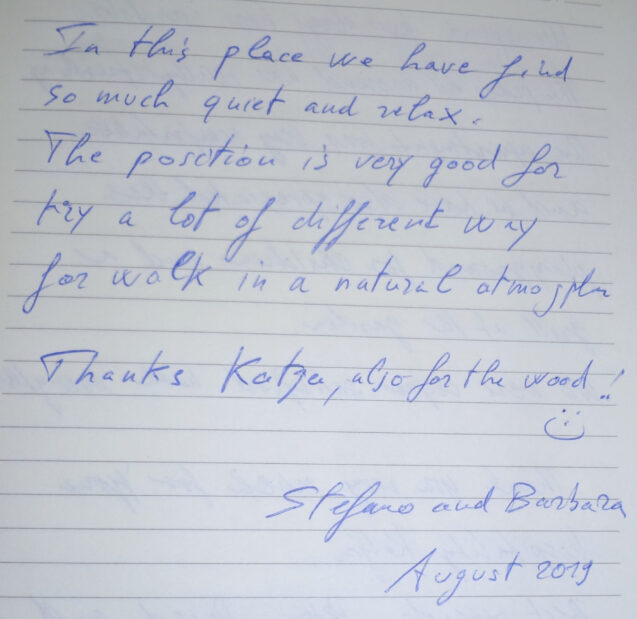 In this place we have find
so much quiet and relax.
The position is very good for
try a lot of different way
for walk in a natural
Thanks Katja, also for the wood!
Stefano and Barbara
August 2019